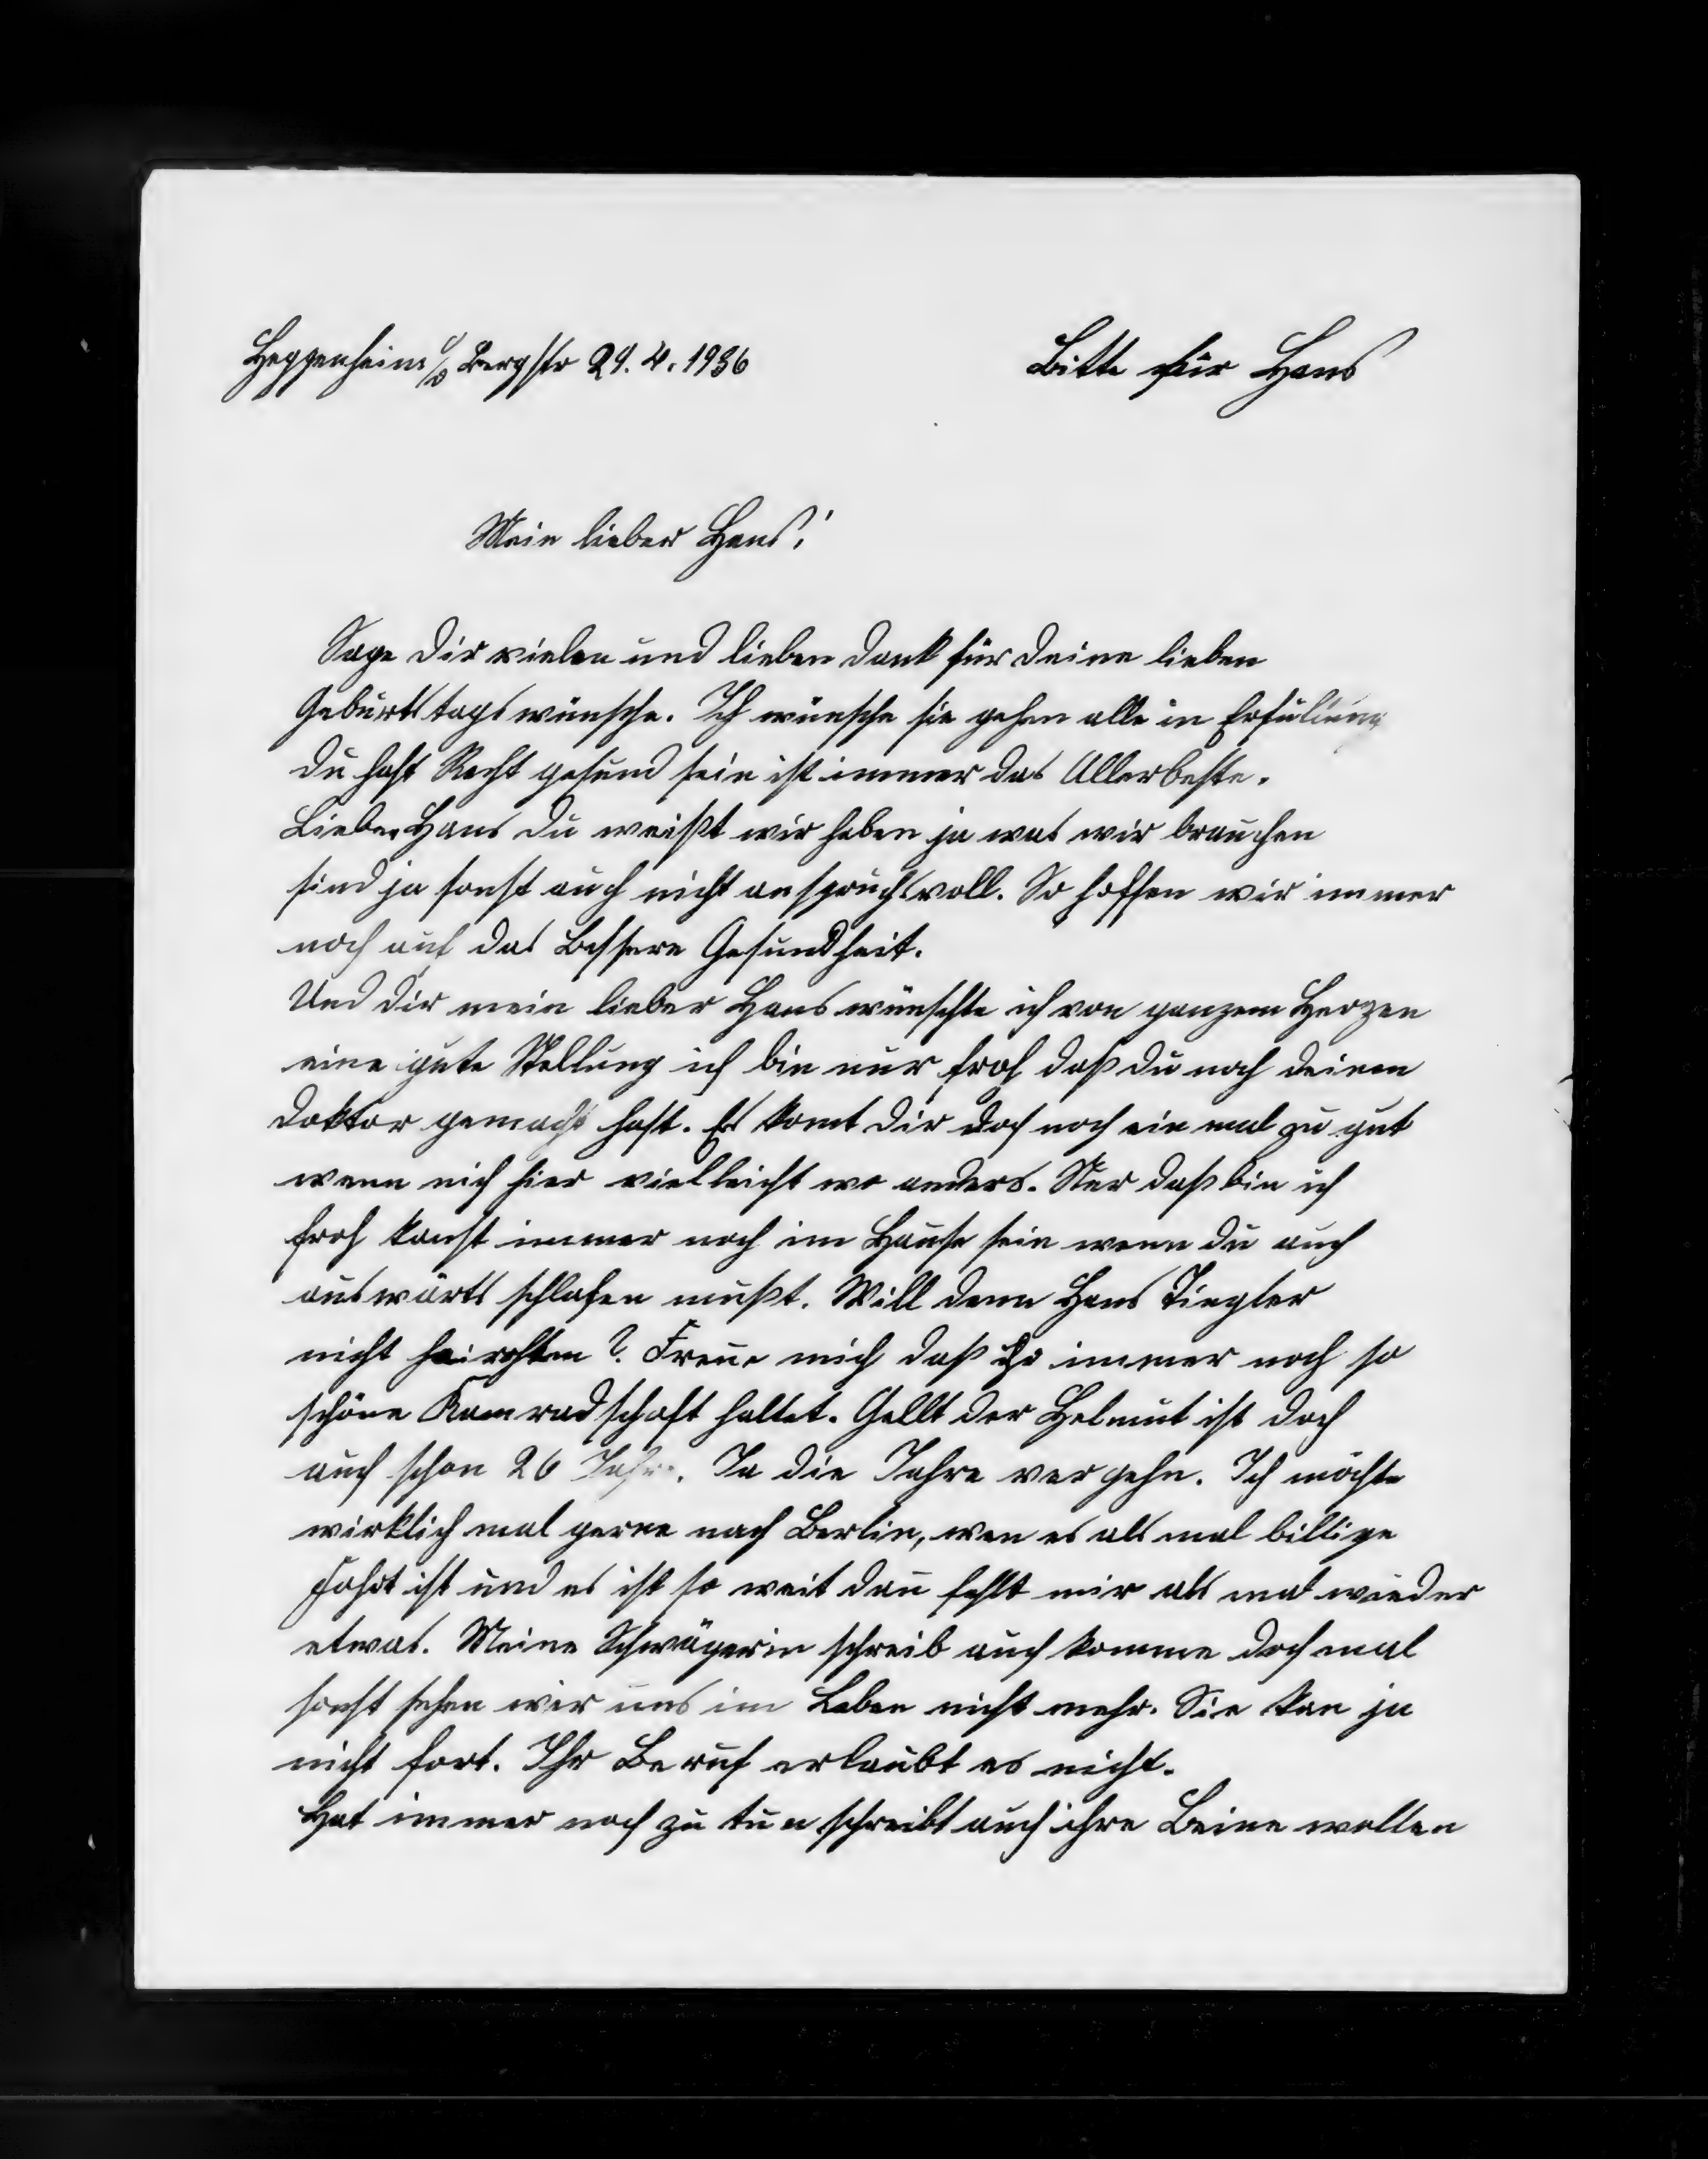 Heppenheim a/d Bergstr 29. 4. 1936
Bitte für Hans
Mein lieber Hans!
Sage dir vielen und lieben Dank für deine lieben
Geburtstags wünsche. Ich wünsche sie gehen alle in Erfüllung
du hast Recht gesund sein ist immer das Allerbeste.
Lieber Hans du weißt wir haben ja was wir brauchen
sind ja sonst auch nicht anspruchsvoll. So hoffen wir immer
noch auf das Bessere Gesundheit.
Und dir mein lieber Hans wünschte ich von ganzem Herzen
eine gute Stellung ich bin nur froh daß du noch deinen
Doktor gemacht hast. Es komt dir doch noch ein mal zu gut
wenn nich hier vielleicht wo anders. Nur daß bin ich
froh kanst immer noch im Hause sein wenn du auch
auswärts schlafen mußt. Will denn Hans Ziegler
nicht heirathen? Freue mich daß ihr immer noch so
schöne Kamradschaft haltet. Gellt der Helmut ist doch
auch schon 26 Jahre. Ja die Jahre vergehn. Ich möchte
wirklich mal gerne nach Berlin, wen es als mal billige
Fahrt ist und es ist so weit dan fehlt mir als mal wieder
etwas. Meine Schwägerin schreib auch komme doch mal
sonst sehen wir uns im Leben nicht mehr. Sie kan ja
nicht fort. Ihr Beruf erlaubt es nicht.
Hat immer noch zu tun schreibt auch ihre Beine wollen